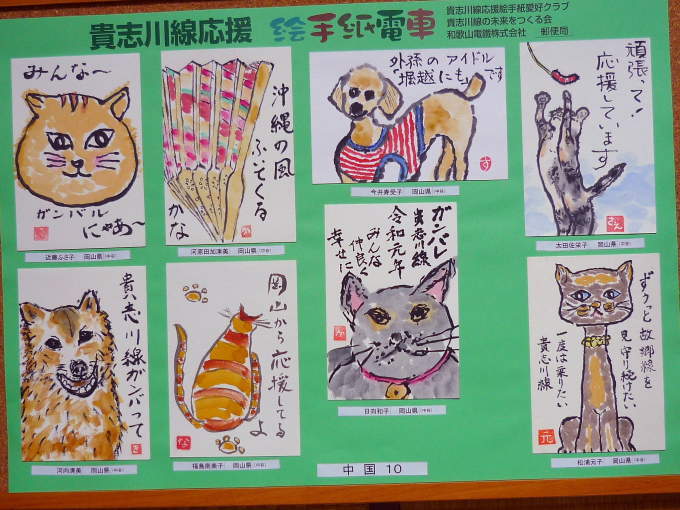 貴志川線応援 絵手紙電車
貴志川線応援絵手紙愛好クラブ
貴志川線の未来をつくる会
和歌山電鐵株式会社 郵便局
みんな〜
ガンバル
にゃあ〜
近藤ふさ子 岡山県(中国)
沖縄の風
ふいてくる
かな
河原田加津美 岡山県(中国)
外孫のアイドル
「堀越にも」です
す
今井寿受子 岡山県(中国)
頑張って!
応援しています
さえ
太田佐栄子 岡山県(中国)
貴志川線ガンバって
き
河内清美 岡山県(中国)
岡山から応援してる
よ
な
福島南美子 岡山県(中国)
ガンバレ
貴志川線
令和元年
みんな
仲良く
幸せに
日向和子 岡山県(中国)
ずうっと故郷線を
見守り続けたい
一度は乗りたい
貴志川線
元
松浦元子 岡山県(中国)
中国 10